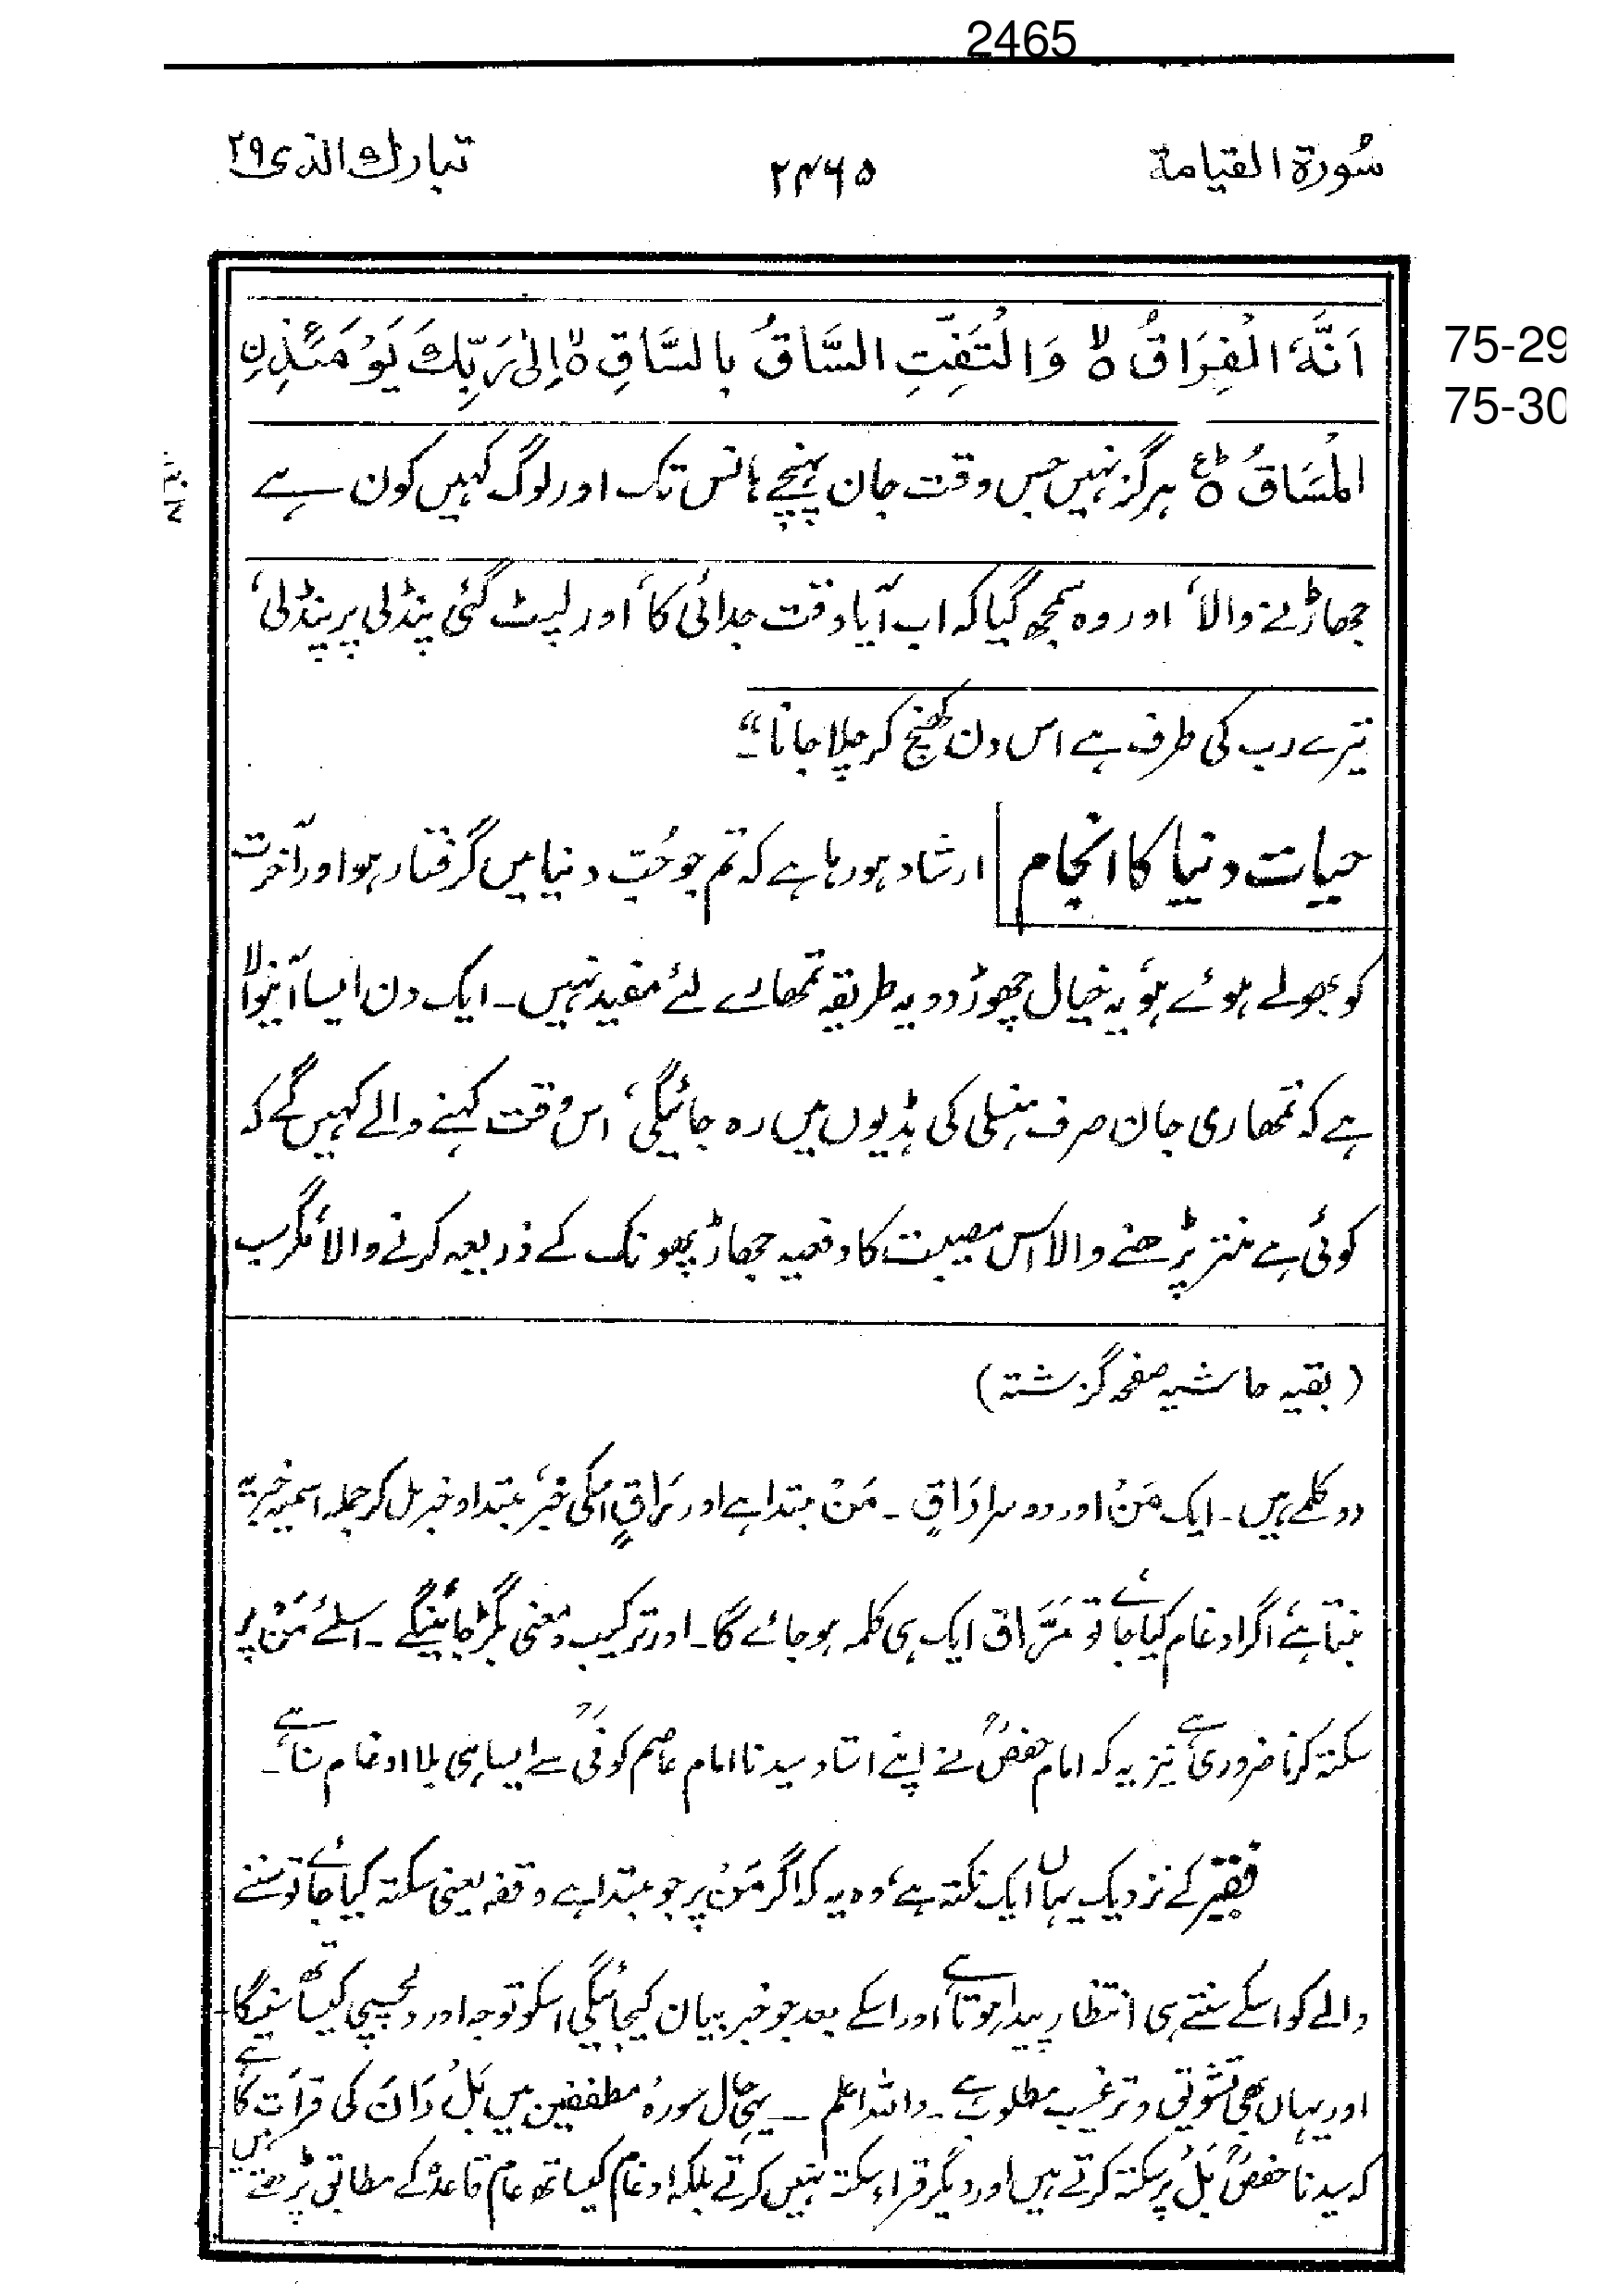 2465
سُورة القيامة ۲۴۶۵ تبارك الذی ۲۹
اَنَّهُ الْفِرَاقُ ۙ وَالْتَفَّتِ السَّاقُ بِالسَّاقِ ۙ اِلٰی رَبِّكَ یَوْمَئِذِنِ
75-29
75-30
الْمَسَاقُ ۭ ہرگز نہیں جس وقت جان پہنچے ہانس تک اور لوگ کہیں کون ہے
جھاڑنے والا، اور وہ سمجھ گیا کہ اب آیا وقت جدائی کا، اور لپٹ گئی پنڈلی پر پنڈلی،
تیرے رب کی طرف ہے اس دن کھنچ کر چلا جانا“۔
حیات دنیا کا انجام ارشاد ہورہا ہے کہ تم جو حُبِّ دنیا میں گرفتار ہو اور آخرت
کو بھولے ہوئے ہو، یہ خیال چھوڑ دو یہ طریقہ تمھارے لئے مفید نہیں۔ ایک دن ایسا آنیوالا
ہے کہ تمھاری جان صرف ہنسلی کی ہڈیوں میں رہ جائیگی، اس وقت کہنے والے کہیں گے کہ
کوئی ہے منتر پڑھنے والا اس مصیبت کا دفعیہ جھاڑ پھونک کے ذریعہ کرنے والا، مگر سب
(بقیہ حاشیہ صفحہ گزشتہ)
دو کلمے ہیں۔ ایک مَنْ اور دوسرا رَاقٍ۔ مَنْ مبتدا ہے اور رَاقٍ اسکی خبر، مبتدا و خبر مل کر جملہ اسمیہ خبریہ
بنتا ہے، اگر ادغام کیا جائے تو مَرَّاق ایک ہی کلمہ ہو جائے گا۔ اور ترکیب و معنی بگڑ جائینگے۔ اسلئے مَنْ پر
سکتہ کرنا ضروری ہے، نیز یہ کہ امام حفصؒ نے اپنے استاد سیدنا امام عاصم کوفیؒ سے ایسا ہی بلا ادغام سنا ہے۔
فقیر کے نزدیک یہاں ایک نکتہ ہے، وہ یہ کہ اگر مَنْ پر جو مبتدا ہے وقفہ یعنی سکتہ کیا جائے تو سننے
والے کو اسکے سنتے ہی انتظار پیدا ہوتا ہے اور اسکے بعد جو خبر بیان کیجائیگی اسکو توجہ اور دلچسپی کیساتھ سنیگا
اور یہاں بھی تشویق و ترغیب مطلوب ہے۔ واللہ اعلم ــ یہی حال سورۂ مطففین میں بَلْ رَانَ کی قرأت کا ہے
کہ سیدنا حفصؒ بَلْ پر سکتہ کرتے ہیں اور دیگر قراء سکتہ نہیں کرتے بلکہ ادغام کیساتھ عام قاعدہ کے مطابق پڑھتے ہیں